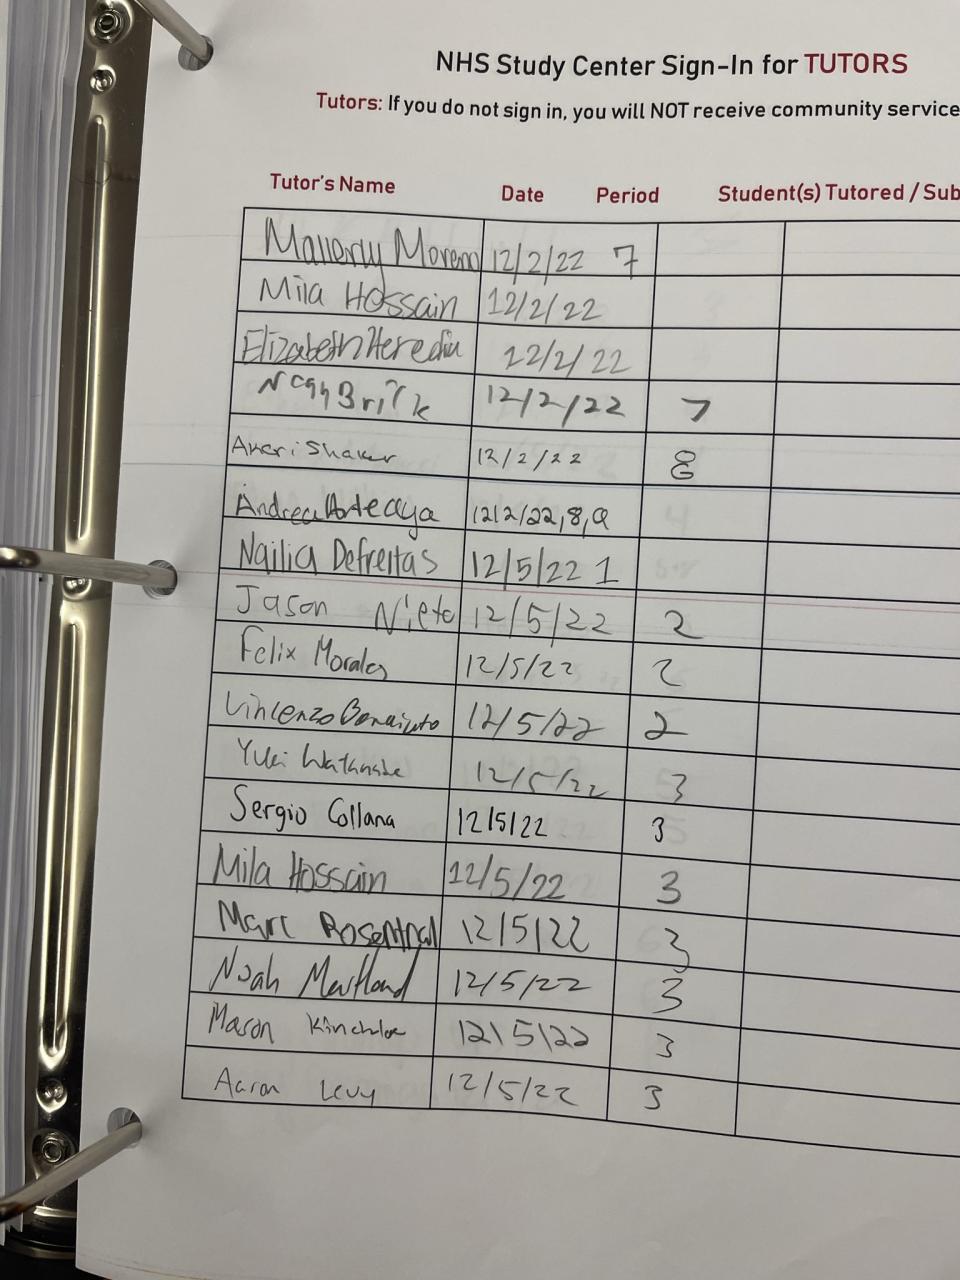 NHS Study Center Sign-In for TUTORS
Tutors: If you do not sign in, you will NOT receive community service
Tutor's Name Date Period Student(s) Tutored / Sub
Mallerly Moreno 12/2/22 7
Mila Hossain 12/2/22
Elizabeth Heredia 12/2/22
Noah Brilk 12/2/22 7
Akari Shaker 12/2/22 8
Andrea Arteaga 12/2/22, 8, 9
Nailia Defreitas 12/5/22 1
Jason Nieto 12/5/22 2
Felix Morales 12/5/22 2
Vincenzo 12/5/22 2
Yuki Watanabe 12/5/22 3
Sergio Collana 12/5/22 3
Mila Hossain 12/5/22 3
Marc Rosenthal 12/5/22 3
Noah Maitland 12/5/22 3
Mason Kincheloe 12\5\22 3
Aaron Levy 12/5/22 3